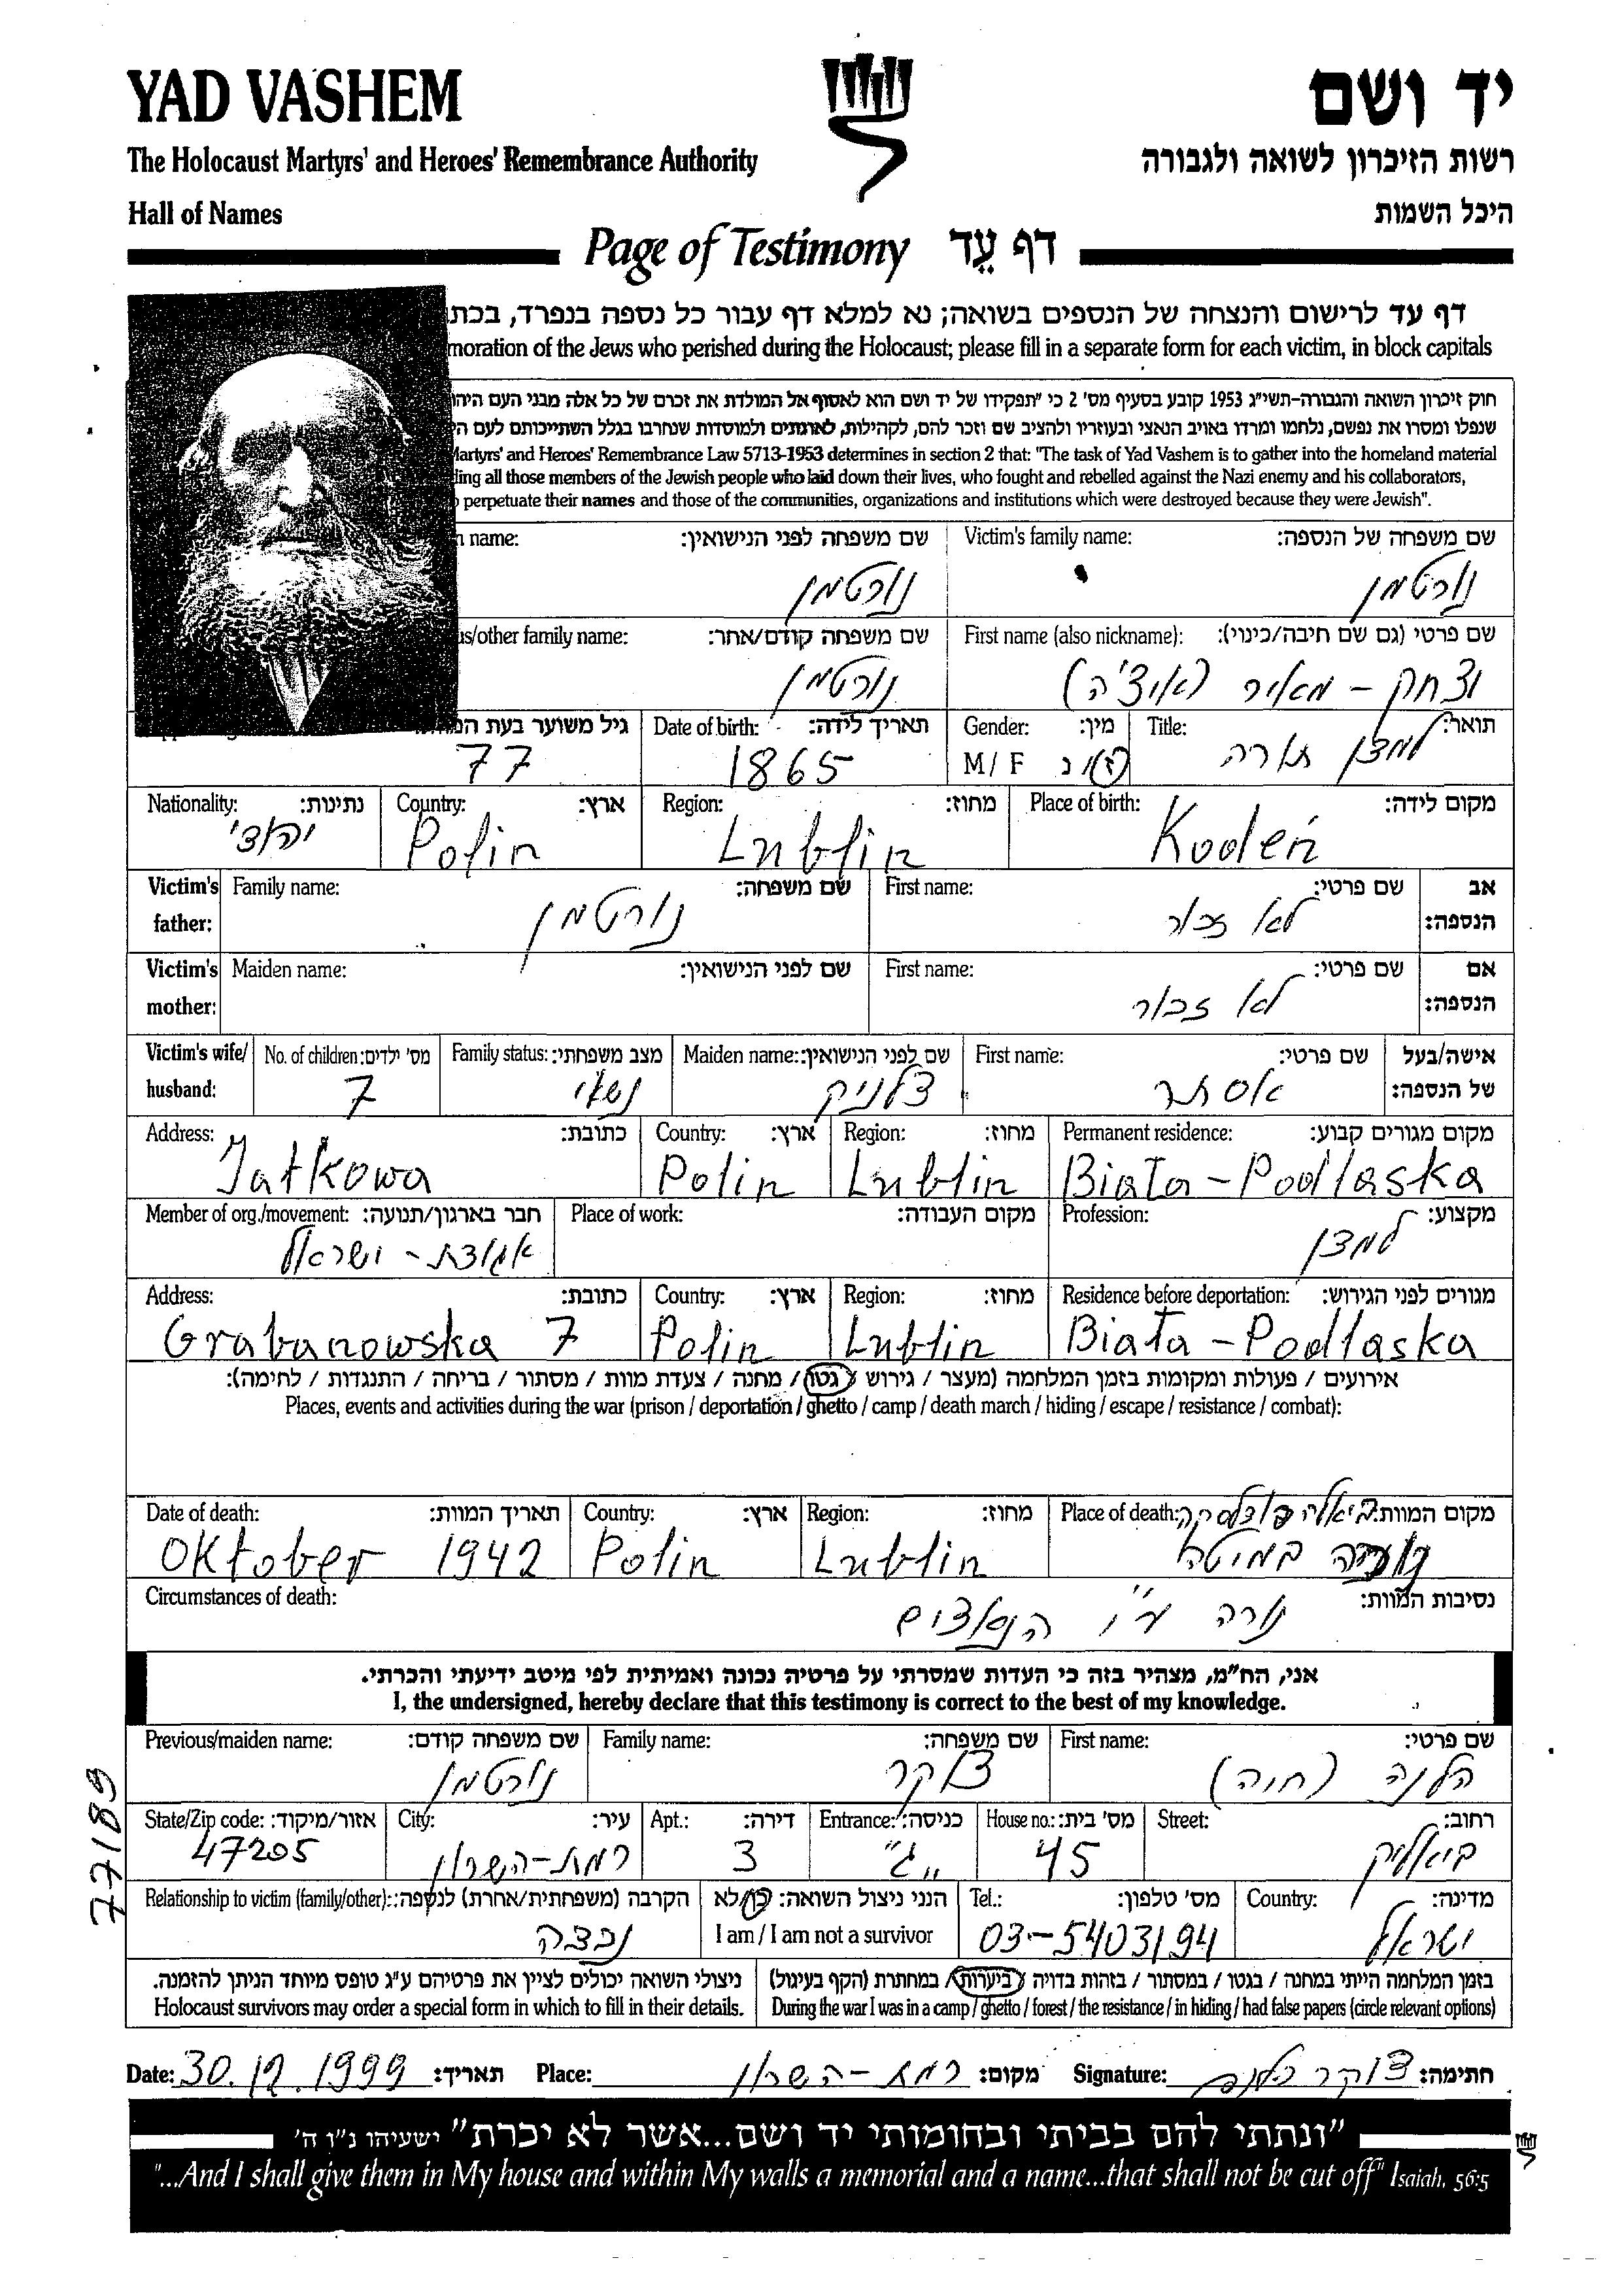 YAD VASHEM
יד ושם
The Holocaust Martyrs' and Heroes' Remembrance Authority
רשות הזיכרון לשואה ולגבורה
Hall of Names
היכל השמות
Page of Testimony דף עד
דף עד לרישום והנצחה של הנספים בשואה; נא למלא דף עבור כל נספה בנפרד, בכת
moration of the Jews who perished during the Holocaust; please fill in a separate form for each victim, in block capitals
חוק זיכרון השואה והגבורה-תשי"ג 1953 קובע בסעיף מס' 2 כי "תפקידו של יד ושם הוא לאסוף אל המולדת את זכרם של כל אלה מבני העם היהו
שנפלו ומסרו את נפשם, נלחמו ומרדו באויב הנאצי ובעוזריו ולהציב שם וזכר להם, לקהילות, לארגונים ולמוסדות שנחרבו בגלל השתייכותם לעם הי
Martyrs' and Heroes' Remembrance Law 5713-1953 determines in section 2 that: "The task of Yad Vashem is to gather into the homeland material
ling all those members of the Jewish people who laid down their lives, who fought and rebelled against the Nazi enemy and his collaborators,
perpetuate their names and those of the communities, organizations and institutions which were destroyed because they were Jewish".
n name: שם משפחה לפני הנישואין: Victim's family name: שם משפחה של הנספה:
נורטמן נורטמן
us/other family name: שם משפחה קודם/אחר: First name (also nickname): שם פרטי (גם שם חיבה/כינוי):
נורטמן יצחק - מאיר (איצ'ה)
גיל משוער בעת המ Date of birth: תאריך לידה: Gender: מין: Title: תואר:
77 1865 M / F ז/נ למדן תורה
Nationality: נתינות: Country: ארץ: Region: מחוז: Place of birth: מקום לידה:
יהודי Polin Lublin Kodeń
Victim's father: Family name: שם משפחה: First name: שם פרטי: אב הנספה:
נורטמן לא זכור
Victim's mother: Maiden name: שם לפני הנישואין: First name: שם פרטי: אם הנספה:
לא זכור
Victim's wife/ husband: No. of children: מס' ילדים: Family status: מצב משפחתי: Maiden name: שם לפני הנישואין: First name: שם פרטי: אישה/בעל של הנספה:
7 נשוי זלניק אסתר
Address: כתובת: Country: ארץ: Region: מחוז: Permanent residence: מקום מגורים קבוע:
Jatkowa Polin Lublin Biała - Podlaska
Member of org./movement: חבר בארגון/תנועה: Place of work: מקום העבודה: Profession: מקצוע:
אגודת - ישראל למדן
Address: כתובת: Country: ארץ: Region: מחוז: Residence before deportation: מגורים לפני הגירוש:
Grabanowska 7 Polin Lublin Biała - Podlaska
אירועים / פעולות ומקומות בזמן המלחמה (מעצר / גירוש / גטו / מחנה / צעדת מוות / מסתור / בריחה / התנגדות / לחימה):
Places, events and activities during the war (prison / deportation / ghetto / camp / death march / hiding / escape / resistance / combat):
Date of death: תאריך המוות: Country: ארץ: Region: מחוז: Place of death: מקום המוות: ביאלה פודלסקה
Oktober 1942 Polin Lublin במיטה
Circumstances of death: נסיבות המוות:
נורה ע"י הנאצים
אני, הח"מ, מצהיר בזה כי העדות שמסרתי על פרטיה נכונה ואמיתית לפי מיטב ידיעתי והכרתי.
I, the undersigned, hereby declare that this testimony is correct to the best of my knowledge.
Previous/maiden name: שם משפחה קודם: Family name: שם משפחה: First name: שם פרטי:
נורטמן צוקר הלנה (חוה)
State/Zip code: אזור/מיקוד: City: עיר: Apt.: דירה: Entrance: כניסה: House no.: מס' בית: Street: רחוב:
47205 רמת-השרון 3 "ג" 45 ביאליק
Relationship to victim (family/other): הקרבה (משפחתית/אחרת) לנספה: הנני ניצול השואה: כן/לא Tel.: מס' טלפון: Country: מדינה:
נכדה I am / I am not a survivor 03-5403194 ישראל
ניצולי השואה יכולים לציין את פרטיהם ע"ג טופס מיוחד הניתן להזמנה. בזמן המלחמה הייתי במחנה / בגטו / במסתור / בזהות בדויה / ביערות / במחתרת (הקף בעיגול)
Holocaust survivors may order a special form in which to fill in their details. During the war I was in a camp / ghetto / forest / the resistance / in hiding / had false papers (circle relevant options)
Date: 30.12.1999 תאריך: Place: רמת-השרון מקום: Signature: צוקר הלנה חתימה:
"ונתתי להם בביתי ובחומותי יד ושם...אשר לא יכרת" ישעיהו נ"ו ה'
"...And I shall give them in My house and within My walls a memorial and a name...that shall not be cut off" Isaiah, 56:5
77189